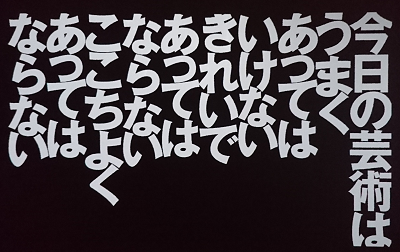 今日の芸術は
うまく
あっては
いけない
きれいで
あっては
ならない
ここちよく
あっては
ならない